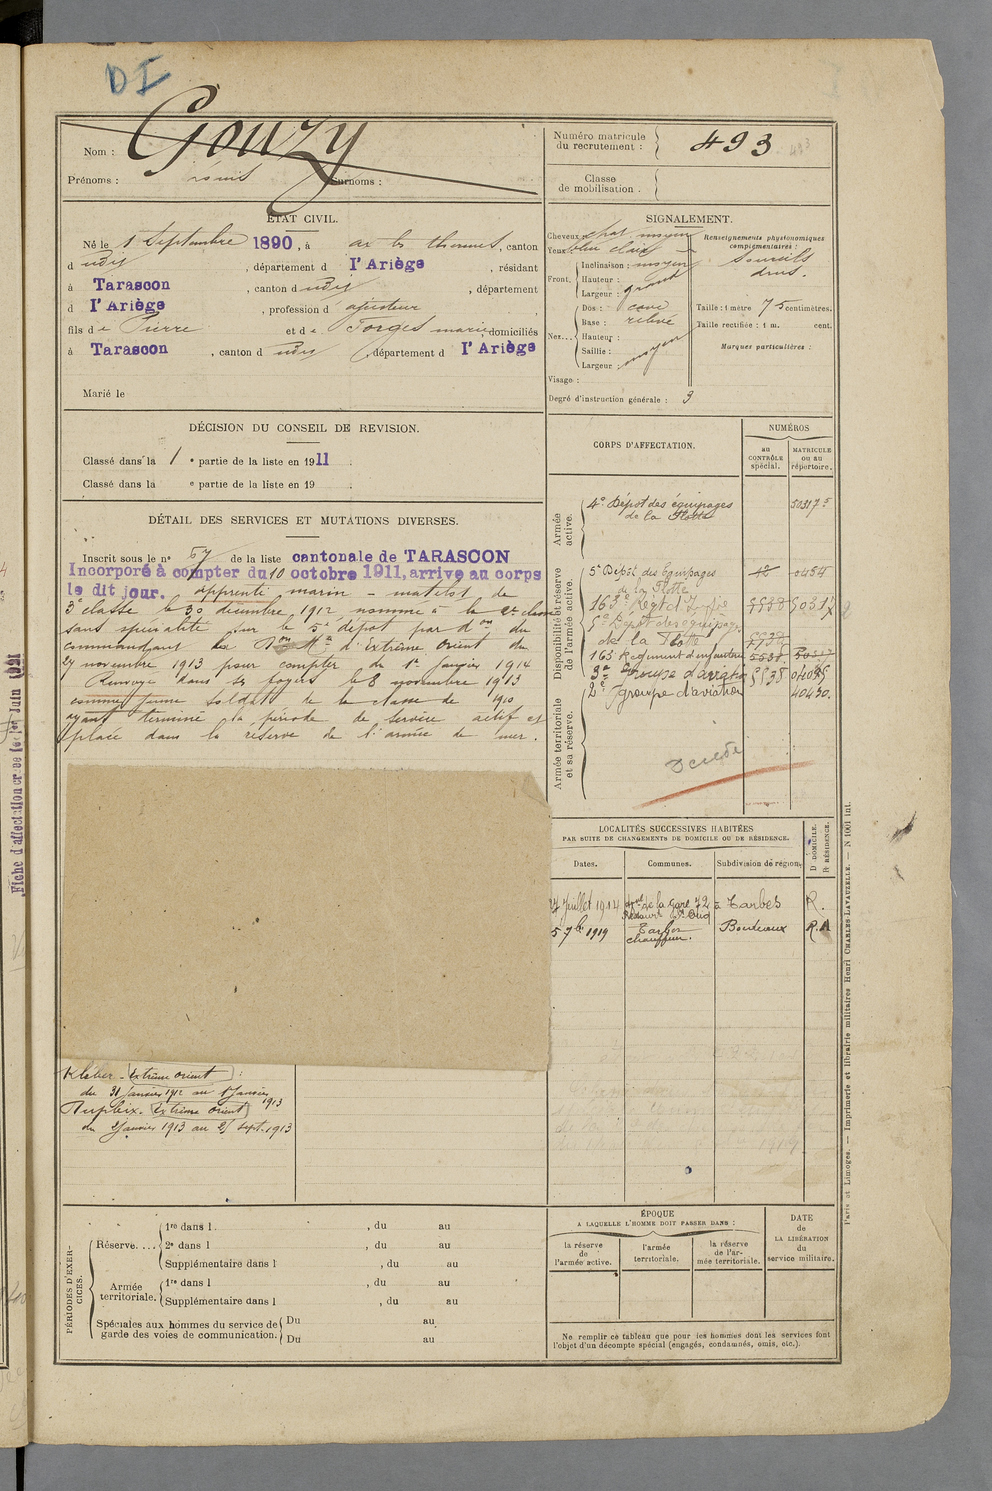 DI
Nom : Gouzy
Prénoms : Louis Surnoms :
Numéro matricule du recrutement : 493
Classe de mobilisation :
ÉTAT CIVIL.
Né le 1 Septembre 1890, à ax les thermes, canton
d udit, département d l'Ariège, résidant
à Tarascon, canton d udit, département
d l'Ariège, profession d ajusteur
fils de Pierre et de Forges marie domiciliés
à Tarascon, canton d udit, département d l'Ariège
Marié le
SIGNALEMENT.
Cheveux chat moyen
Yeux bleu clair
Front. Inclinaison : moyen
Hauteur :
Largeur : grand
Nez... Dos : cave
Base : relevé
Hauteur :
Saillie :
Largeur : moyen
Visage :
Degré d'instruction générale : 3
Renseignements physionomiques complémentaires :
Sourcils
drus.
Taille : 1 mètre 75 centimètres.
Taille rectifiée : 1 m. cent.
Marques particulières :
DÉCISION DU CONSEIL DE REVISION.
Classé dans la 1 e partie de la liste en 1911.
Classé dans la e partie de la liste en 19 .
DÉTAIL DES SERVICES ET MUTATIONS DIVERSES.
Inscrit sous le n° 57 de la liste cantonale de TARASCON
Incorporé à compter du 10 octobre 1911, arrive au corps
le dit jour. apprenti marin - matelot de
3e classe le 30 décembre 1912 nommé à la 2e classe
sans spécialité sur le 5e dépôt par don du
commandant la Don d'Extrême Orient du
27 novembre 1913 pour compter du 1er Janvier 1914
Renvoyé dans ses foyers le 8 novembre 1913
comme jeune soldat de la classe de 1910
ayant terminé la période de service actif et
placé dans la réserve de l'armée de mer.
Kléber - Extrême orient :
du 31 Janvier 1912 au 1 Janvier 1913
Dupleix - Extrême Orient
du 2 Janvier 1913 au 25 Sept. 1913
CORPS D'AFFECTATION.
NUMÉROS
au CONTRÔLE spécial.
MATRICULE ou au répertoire.
Armée active.
4e Dépôt des équipages de la Flotte 50317 5
Disponibilité et réserve de l'armée active.
5e Dépôt des Equipages de la Flotte 0454
163e Régt d'Infie 5538 50317
5e Dépôt des équipages de la Flotte 5538
163 Régiment d'infanterie 5538 50317
3e Groupe d'aviation 5538 04025
2e groupe d'aviation 40430.
Armée territoriale et sa réserve.
Décédé
LOCALITÉS SUCCESSIVES HABITÉES
PAR SUITE DE CHANGEMENTS DE DOMICILE OU DE RÉSIDENCE.
Dates. Communes. Subdivision de région. D DOMICILE. R RÉSIDENCE.
27 Juillet 1914 de la Gare 72 à Tarbes R.
5 7bre 1919 Tarbes chauffeur. Bordeaux R.A
PÉRIODES D'EXERCICES.
Réserve.... 1re dans l , du au
2e dans l , du au
Supplémentaire dans l , du au
Armée territoriale. 1re dans l , du au
Supplémentaire dans l , du au
Spéciales aux hommes du service de garde des voies de communication. Du au
Du au
ÉPOQUE
A LAQUELLE L'HOMME DOIT PASSER DANS :
la réserve de l'armée active.
l'armée territoriale.
la réserve de l'armée territoriale.
DATE de LA LIBÉRATION du service militaire.
Ne remplir ce tableau que pour les hommes dont les services font
l'objet d'un décompte spécial (engagés, condamnés, omis, etc.).
Paris et Limoges. — Imprimerie et librairie militaires Henri CHARLES-LAVAUZELLE. — N 1001 int.